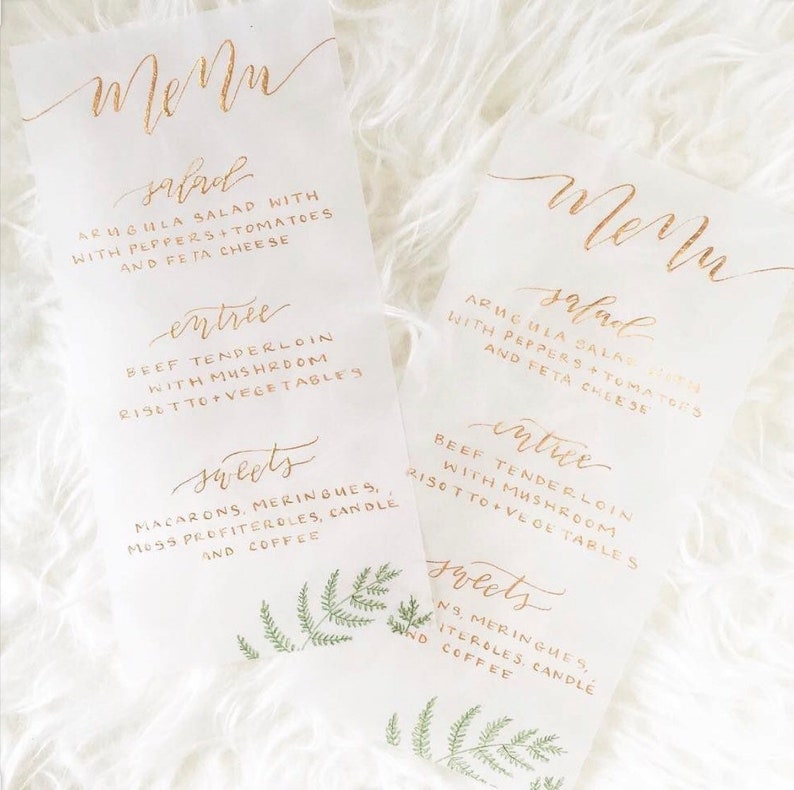 Menu
salad
ARUGULA SALAD WITH
WITH PEPPERS + TOMATOES
AND FETA CHEESE
entree
BEEF TENDERLOIN
WITH MUSHROOM
RISOTTO + VEGETABLES
sweets
MACARONS, MERINGUES,
MOSS PROFITEROLES, CANDLÉ
AND COFFEE
Menu
salad
ARUGULA SALAD WITH
WITH PEPPERS + TOMATOES
AND FETA CHEESE
entree
BEEF TENDERLOIN
WITH MUSHROOM
RISOTTO + VEGETABLES
sweets
NS, MERINGUES,
FITEROLES, CANDLÉ
ND COFFEE